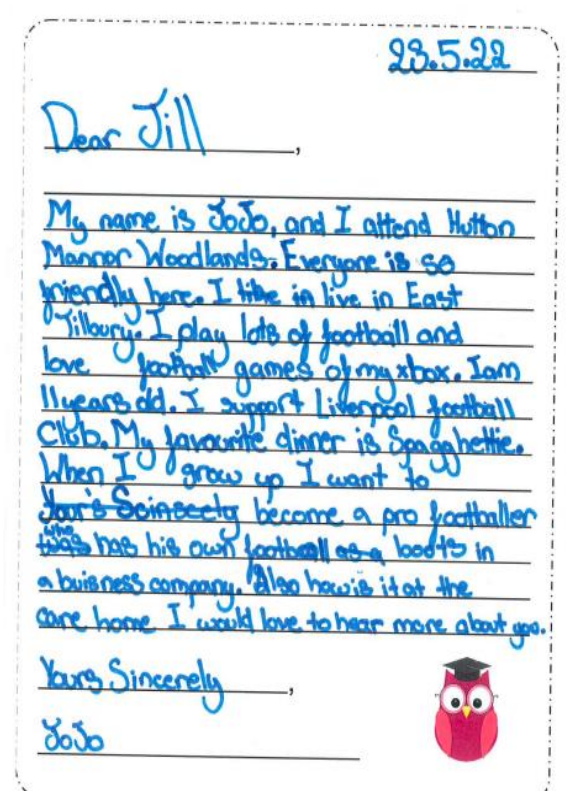 23.5.22
Dear Jill,
My name is JoJo, and I attend Hutton
Mannor Woodlands. Everyone is so
friendly here. I like in live in East
Tilbury. I play lots of football and
love football games of my xbox. I am
11 years old. I support Liverpool football
Club. My favourite dinner is Spagghettie.
When I grow up I want to
Your's Scinscely become a pro footballer
who has his own football as a boots in
a buisness company. Also how is it at the
care home I would love to hear more about you.
Yours Sincerely,
JoJo